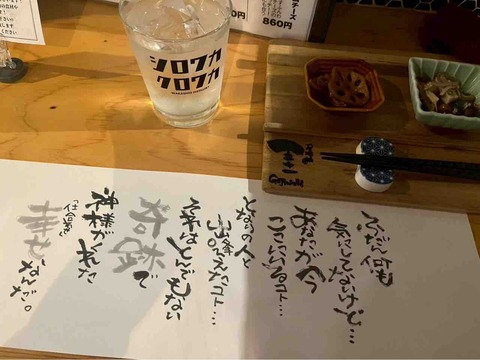 860円
シロワカ
クロワカ
ふだん何も
気にしてないけど…
あなたが今
ここにいるコト…
となりの人と
出会えたコト…
それはとんでもない
奇跡で
神様がくれた
幸せなんだ。